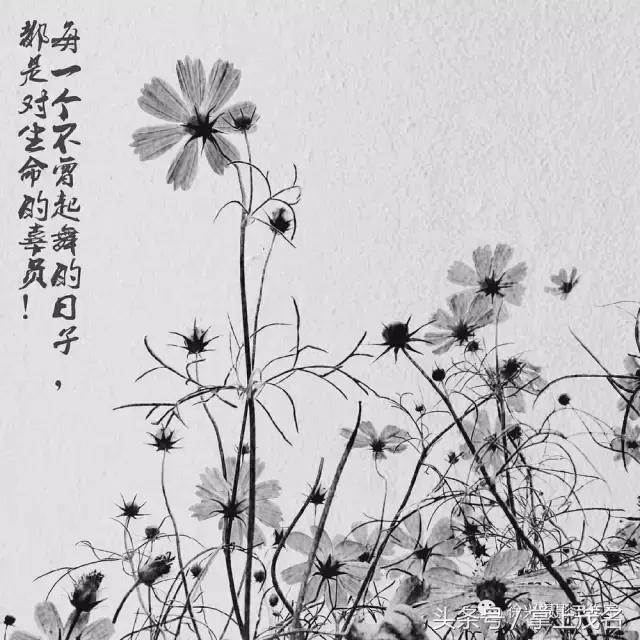 每一个不曾起舞的日子，
都是对生命的辜负！
头条号 / 掌上茂名